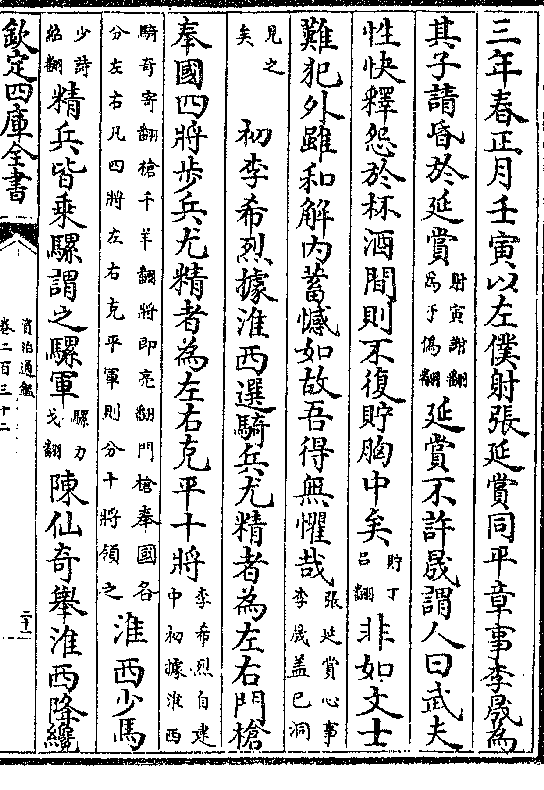 三年春正月壬寅以左僕射張延賞同平章事李晟為
其子請昏於延賞射寅謝翻為于偽翻延賞不許晟謂人曰武夫
性快釋怨於杯酒間則不復貯胸中矣貯丁呂翻非如文士
難犯外雖和解内蓄憾如故吾得無懼哉張延賞心事李晟盖已洞
見之矣初李希烈據淮西選騎兵尤精者為左右門槍
奉國四將歩兵尤精者為左右克平十將李希烈自建中初據淮西
騎奇寄翻槍千羊翻將即亮翻門槍奉國各分左右凡四將左右克平軍則分十將領之淮西少馬
少詩紹翻精兵皆乗騾謂之騾軍騾力戈翻陳仙奇舉淮西降纔
欽定四庫全書
資治通鑑
卷二百三十二
二十一